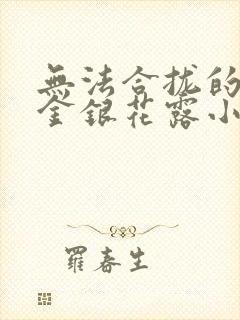 無法合拢的
金銀花露小
羅春生